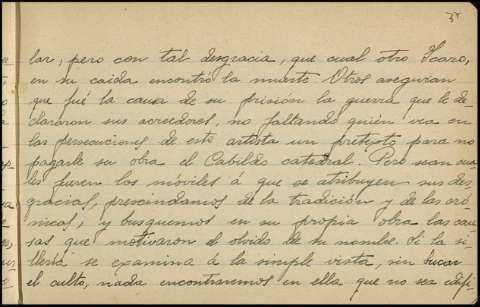 37
lar, pero con tal desgracia, que cual otro Icaro,
en su caida encontró la muerte. Otros aseguran
que fué la causa de su prisión la guerra que le de-
clararon sus acreedores, no faltando quién vea en
las persecuciones de este artista un pretexto para no
pagarle su obra el Cabildo catedral. Pero sean cua-
les fueren los móviles á que se atribuyen sus des-
gracias, prescindamos de la tradición y de las cró-
nicas, y busquemos en su propia obra las cau-
sas que motivaron el olvido de su nombre. Si la si-
lleria se examina á la simple vista, sin buscar
el culto, nada encontraremos en ella que no sea edifi-